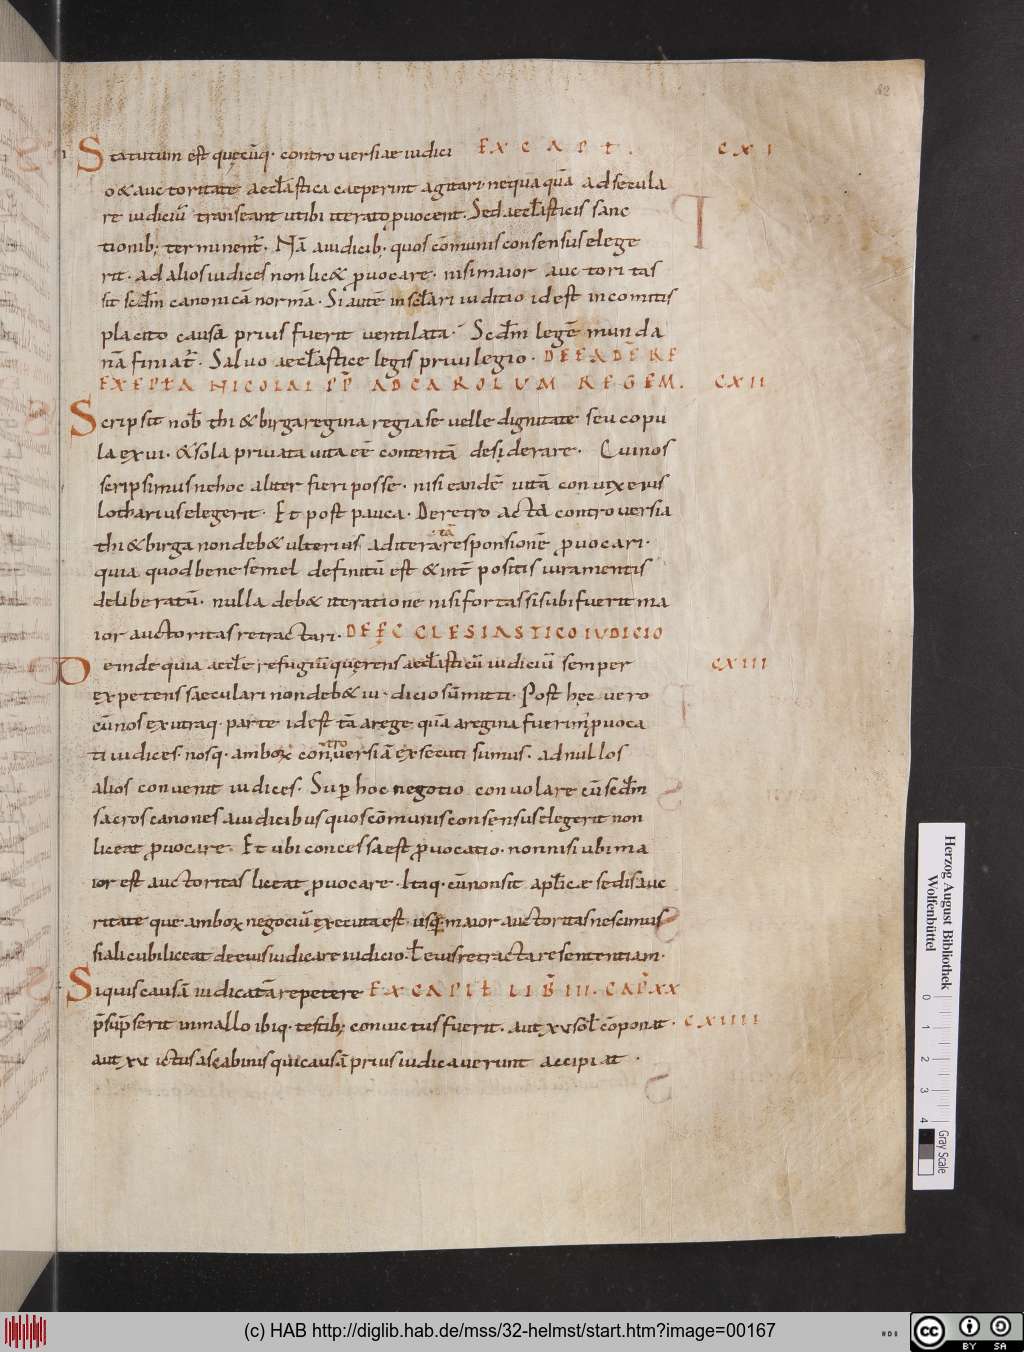 82
Statutum est quęcūq; controuersiae iudici EX CAPT. CXI
o & auctoritate aeccl̄astica caeperint agitari nequaquā ad secula
re iudiciū transeant ut ibi iterato ꝓuocent. Sed aeccl̄asticis sanc
tionib; terminent̄. Nā a iudicib; quos cōmunis consensus elege
rit. ad alios iudices non lic& ꝓuocare. nisi maior auctoritas
sit scd̄m canonicā normā. Si autē in sc̄lari iuditio id est in comitis
placito causa prius fuerit uentilata. Scd̄m legē munda
nā finiat̄. Saluo aeccl̄astice legis priuilegio. DE EADĒ RE
EXEPTA NICOLAI PP̄ AD CAROLUM REGEM. CXII
Scripsit nob̄ thi&birga regina regia se uelle dignitate seu copu
la exui. & sola priuata uita eē contentā desiderare. Cui nos
scripsimus ne hoc aliter fieri posse. nisi eandē uitā coniux eius
lotharius elegerit. Et post pauca. De retro acta controuersia
thi&birga non deb& ulterius ad itera tā responsionē ꝓuocari.
quia quod bene semel definitū est & int̄ positis iuramentis
deliberatū. nulla deb& iteratione nisi fortassis ubi fuerit ma
ior auctoritas retractari. DE ĘCCLESIASTICO IUDICIO
Deinde quia aeccl̄e refugiū quęrens aeccl̄asticū iudiciū semper CXIII
expetens saeculari non deb& iudicio sūmitti. Post hęc uero
cū nos ex utraq; parte id est tā a rege quā a regina fuerim; ꝓuoca
ti iudices. nosq; amboꝝ con tro uersiā exsecuti sumus. ad nullos
alios conuenit iudices. Suꝑ hoc negotio conuolare cū scd̄m
sacros canones a iudicibus quos cōmunis consensus elegerit non
liceat ꝓuocare. Et ubi concessa est ꝓuocatio. non nisi ubi ma
ior est auctoritas liceat ꝓuocare. Itaq; cū non sit apl̄icae sedis auc
ritate que amboꝝ negociū executa est. usq̄; maior auctoritas nescimus
si alicubi liceat de eius iudicare iudicio. l̄ eius retractare sententiam.
Si quis causā iudicatā repetere EX CAPIT̄ LIB̄ III. CAP̄ XX
p̄sūp̄serit in mallo ibiq; testib; conuictus fuerit. aut xv sol̄ cōponat. CXIIII
aut xv ictus a scabinis qui causā prius iudicauerunt accipiat.
Herzog August Bibliothek
Wolfenbüttel
0 1 2 3 4
Gray Scale
(c) HAB http://diglib.hab.de/mss/32-helmst/start.htm?image=00167
cc BY SA